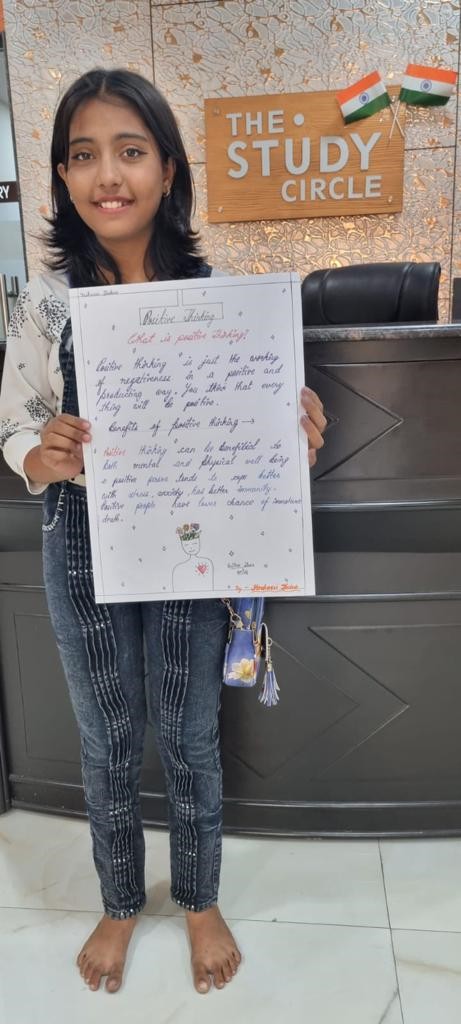 THE
STUDY
CIRCLE
RY
Positive Thinking
What is positive thinking?
Positive thinking is just the working
of negativeness in a positive and
producting way. You think that every
thing will be positive.
Benefits of positive thinking →
Positive thinking can be benefitial to
both mental and physical well being
a positive person tends to cope better
with stress, anxiety, has better immunity.
Positive people have lower chance of
death.
By -